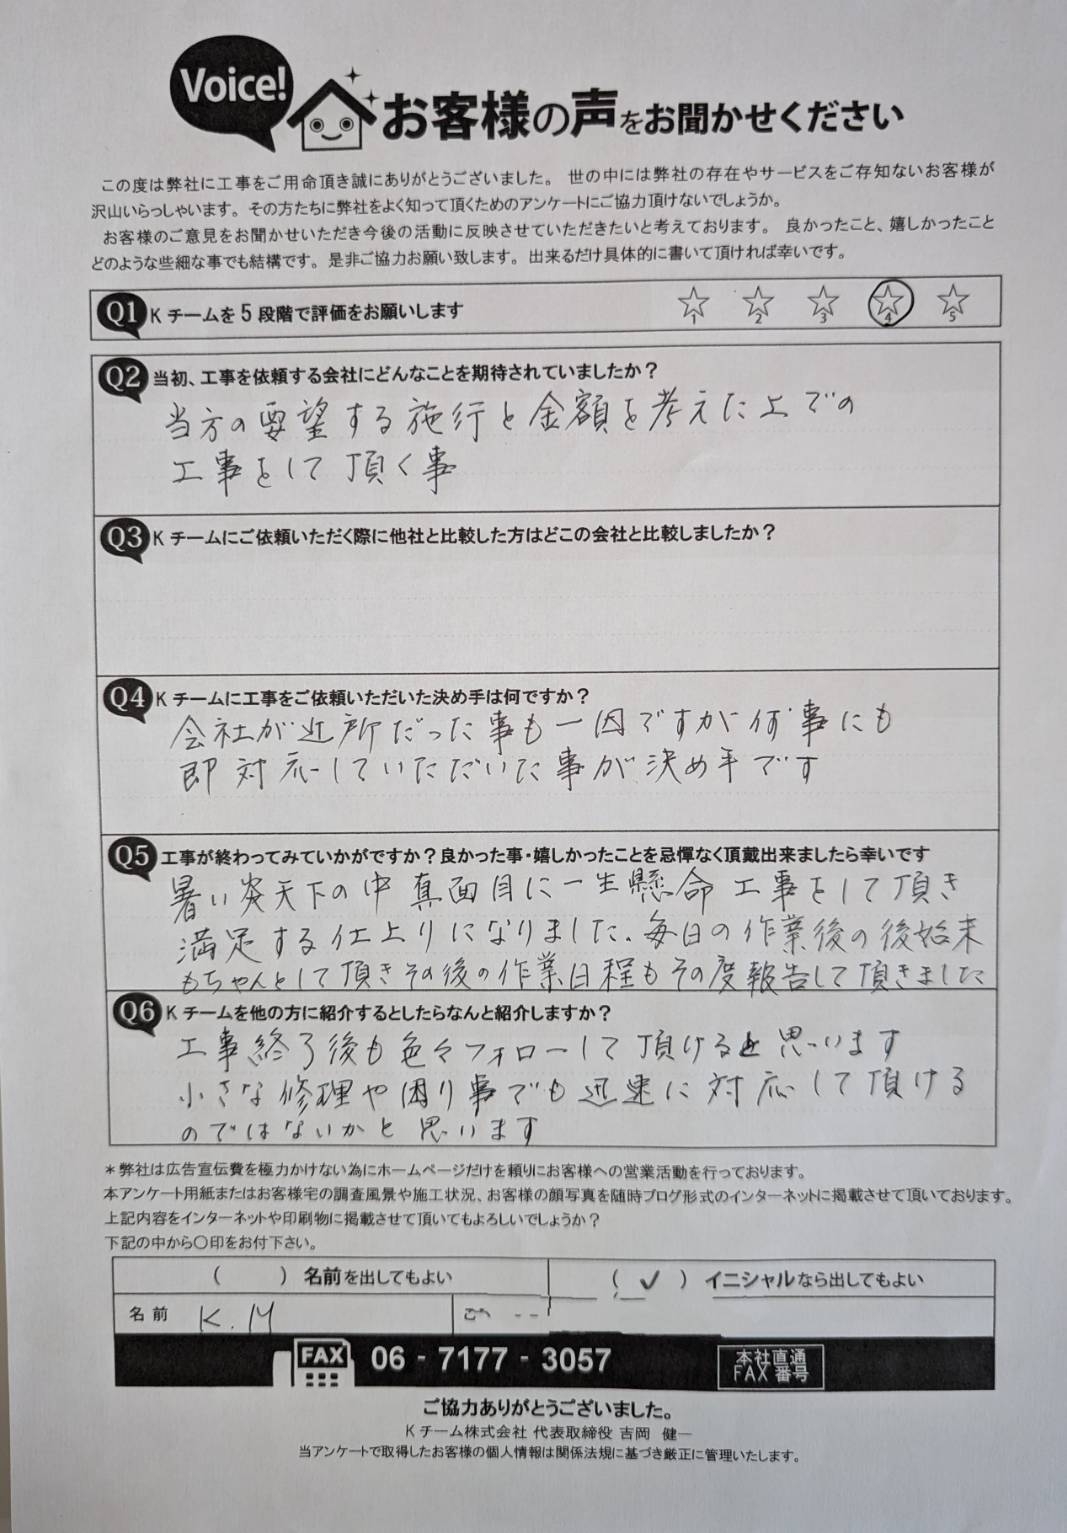 Voice!
お客様の声をお聞かせください
この度は弊社に工事をご用命頂き誠にありがとうございました。 世の中には弊社の存在やサービスをご存知ないお客様が
沢山いらっしゃいます。その方たちに弊社をよく知って頂くためのアンケートにご協力頂けないでしょうか。
お客様のご意見をお聞かせいただき今後の活動に反映させていただきたいと考えております。 良かったこと、嬉しかったこと
どのような些細な事でも結構です。是非ご協力お願い致します。出来るだけ具体的に書いて頂ければ幸いです。
Q1 K チームを 5 段階で評価をお願いします 1 2 3 4 5
Q2 当初、工事を依頼する会社にどんなことを期待されていましたか？
当方の要望する施行と金額を考えた上での
工事をして頂く事
Q3 K チームにご依頼いただく際に他社と比較した方はどこの会社と比較しましたか？
Q4 K チームに工事をご依頼いただいた決め手は何ですか？
会社が近所だった事も一因ですが何事にも
即対応していただいた事が決め手です
Q5 工事が終わってみていかがですか？良かった事・嬉しかったことを忌憚なく頂戴出来ましたら幸いです
暑い炎天下の中真面目に一生懸命工事をして頂き
満足する仕上りになりました、毎日の作業後の後始末
もちゃんとして頂きその後の作業日程もその度報告して頂きました
Q6 K チームを他の方に紹介するとしたらなんと紹介しますか？
工事終了後も色々フォローして頂けると思います
小さな修理や困り事でも迅速に対応して頂ける
のではないかと思います
＊弊社は広告宣伝費を極力かけない為にホームページだけを頼りにお客様への営業活動を行っております。
本アンケート用紙またはお客様宅の調査風景や施工状況、お客様の顔写真を随時ブログ形式のインターネットに掲載させて頂いております。
上記内容をインターネットや印刷物に掲載させて頂いてもよろしいでしょうか？
下記の中から〇印をお付下さい。
（　　）名前を出してもよい （ ✓ ）イニシャルなら出してもよい
名前 K.M
FAX 06 - 7177 - 3057 本社直通
FAX 番号
ご協力ありがとうございました。
K チーム株式会社 代表取締役 吉岡 健一
当アンケートで取得したお客様の個人情報は関係法規に基づき厳正に管理いたします。